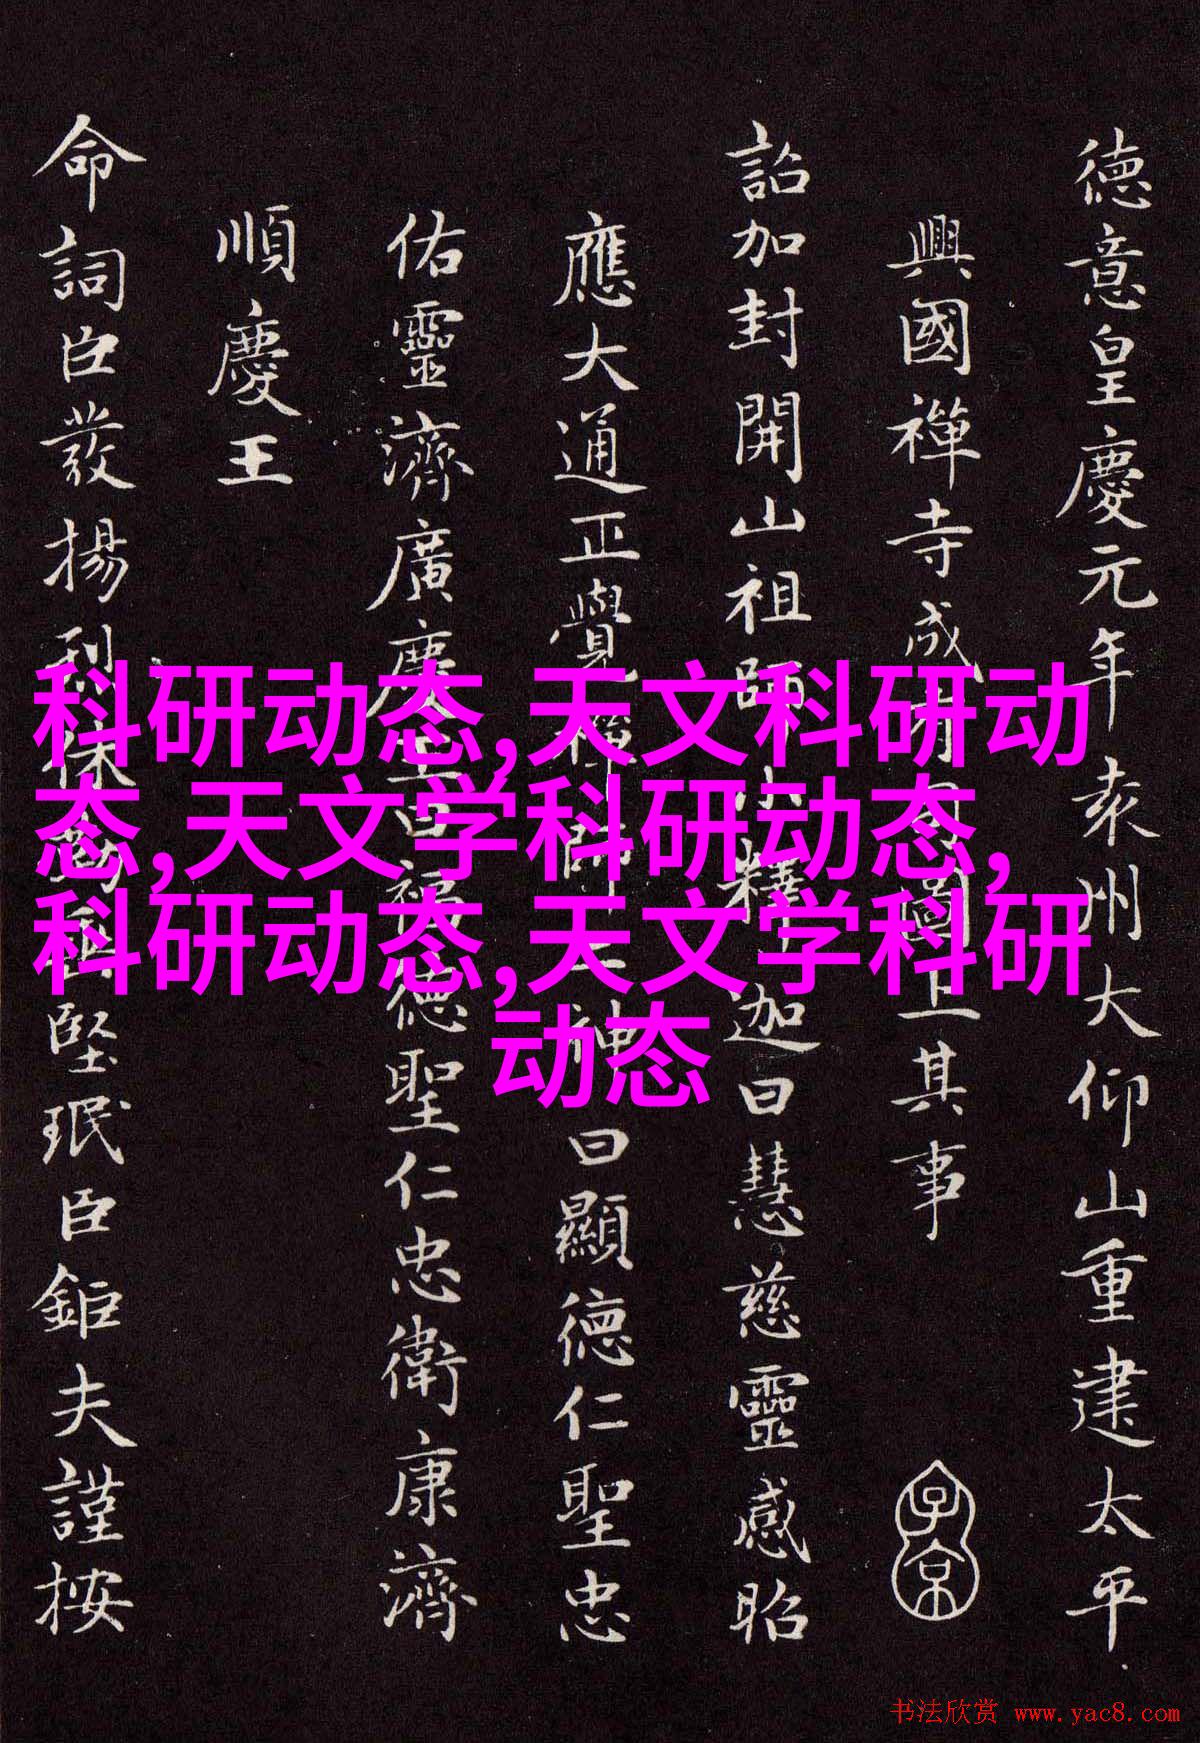 德意皇慶元年袁州大仰山重建太平
興國禪寺成有司圖上其事
詔加封開山祖師小釋迦曰慧慈靈感昭
應大通正覺禪師二神曰顯德仁聖忠
佑靈濟廣慶王曰福德聖仁忠衛康濟
順慶王
命詞臣發揚堅珉臣鉅夫謹按
子京
科研动态,天文科研动
态,天文学科研动态,
科研动态,天文学科研
动态
书法欣赏 www.yac8.com